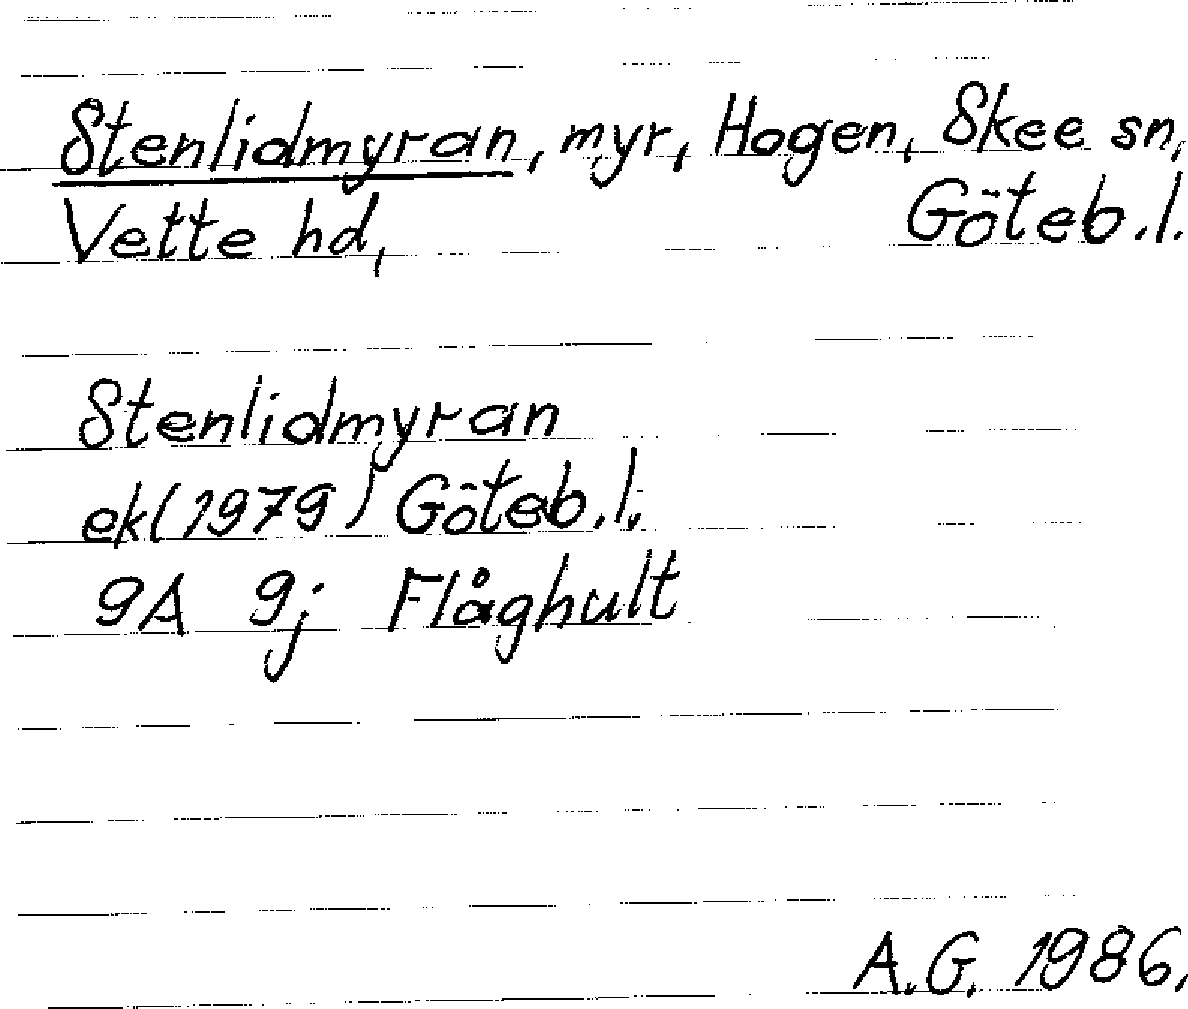 Stenlidmyran, myr, Hogen, Skee sn,
Vette hd, Göteb.l.
Stenlidmyran
ek(1979) Göteb.l.
9A 9j Flåghult
A.G. 1986.